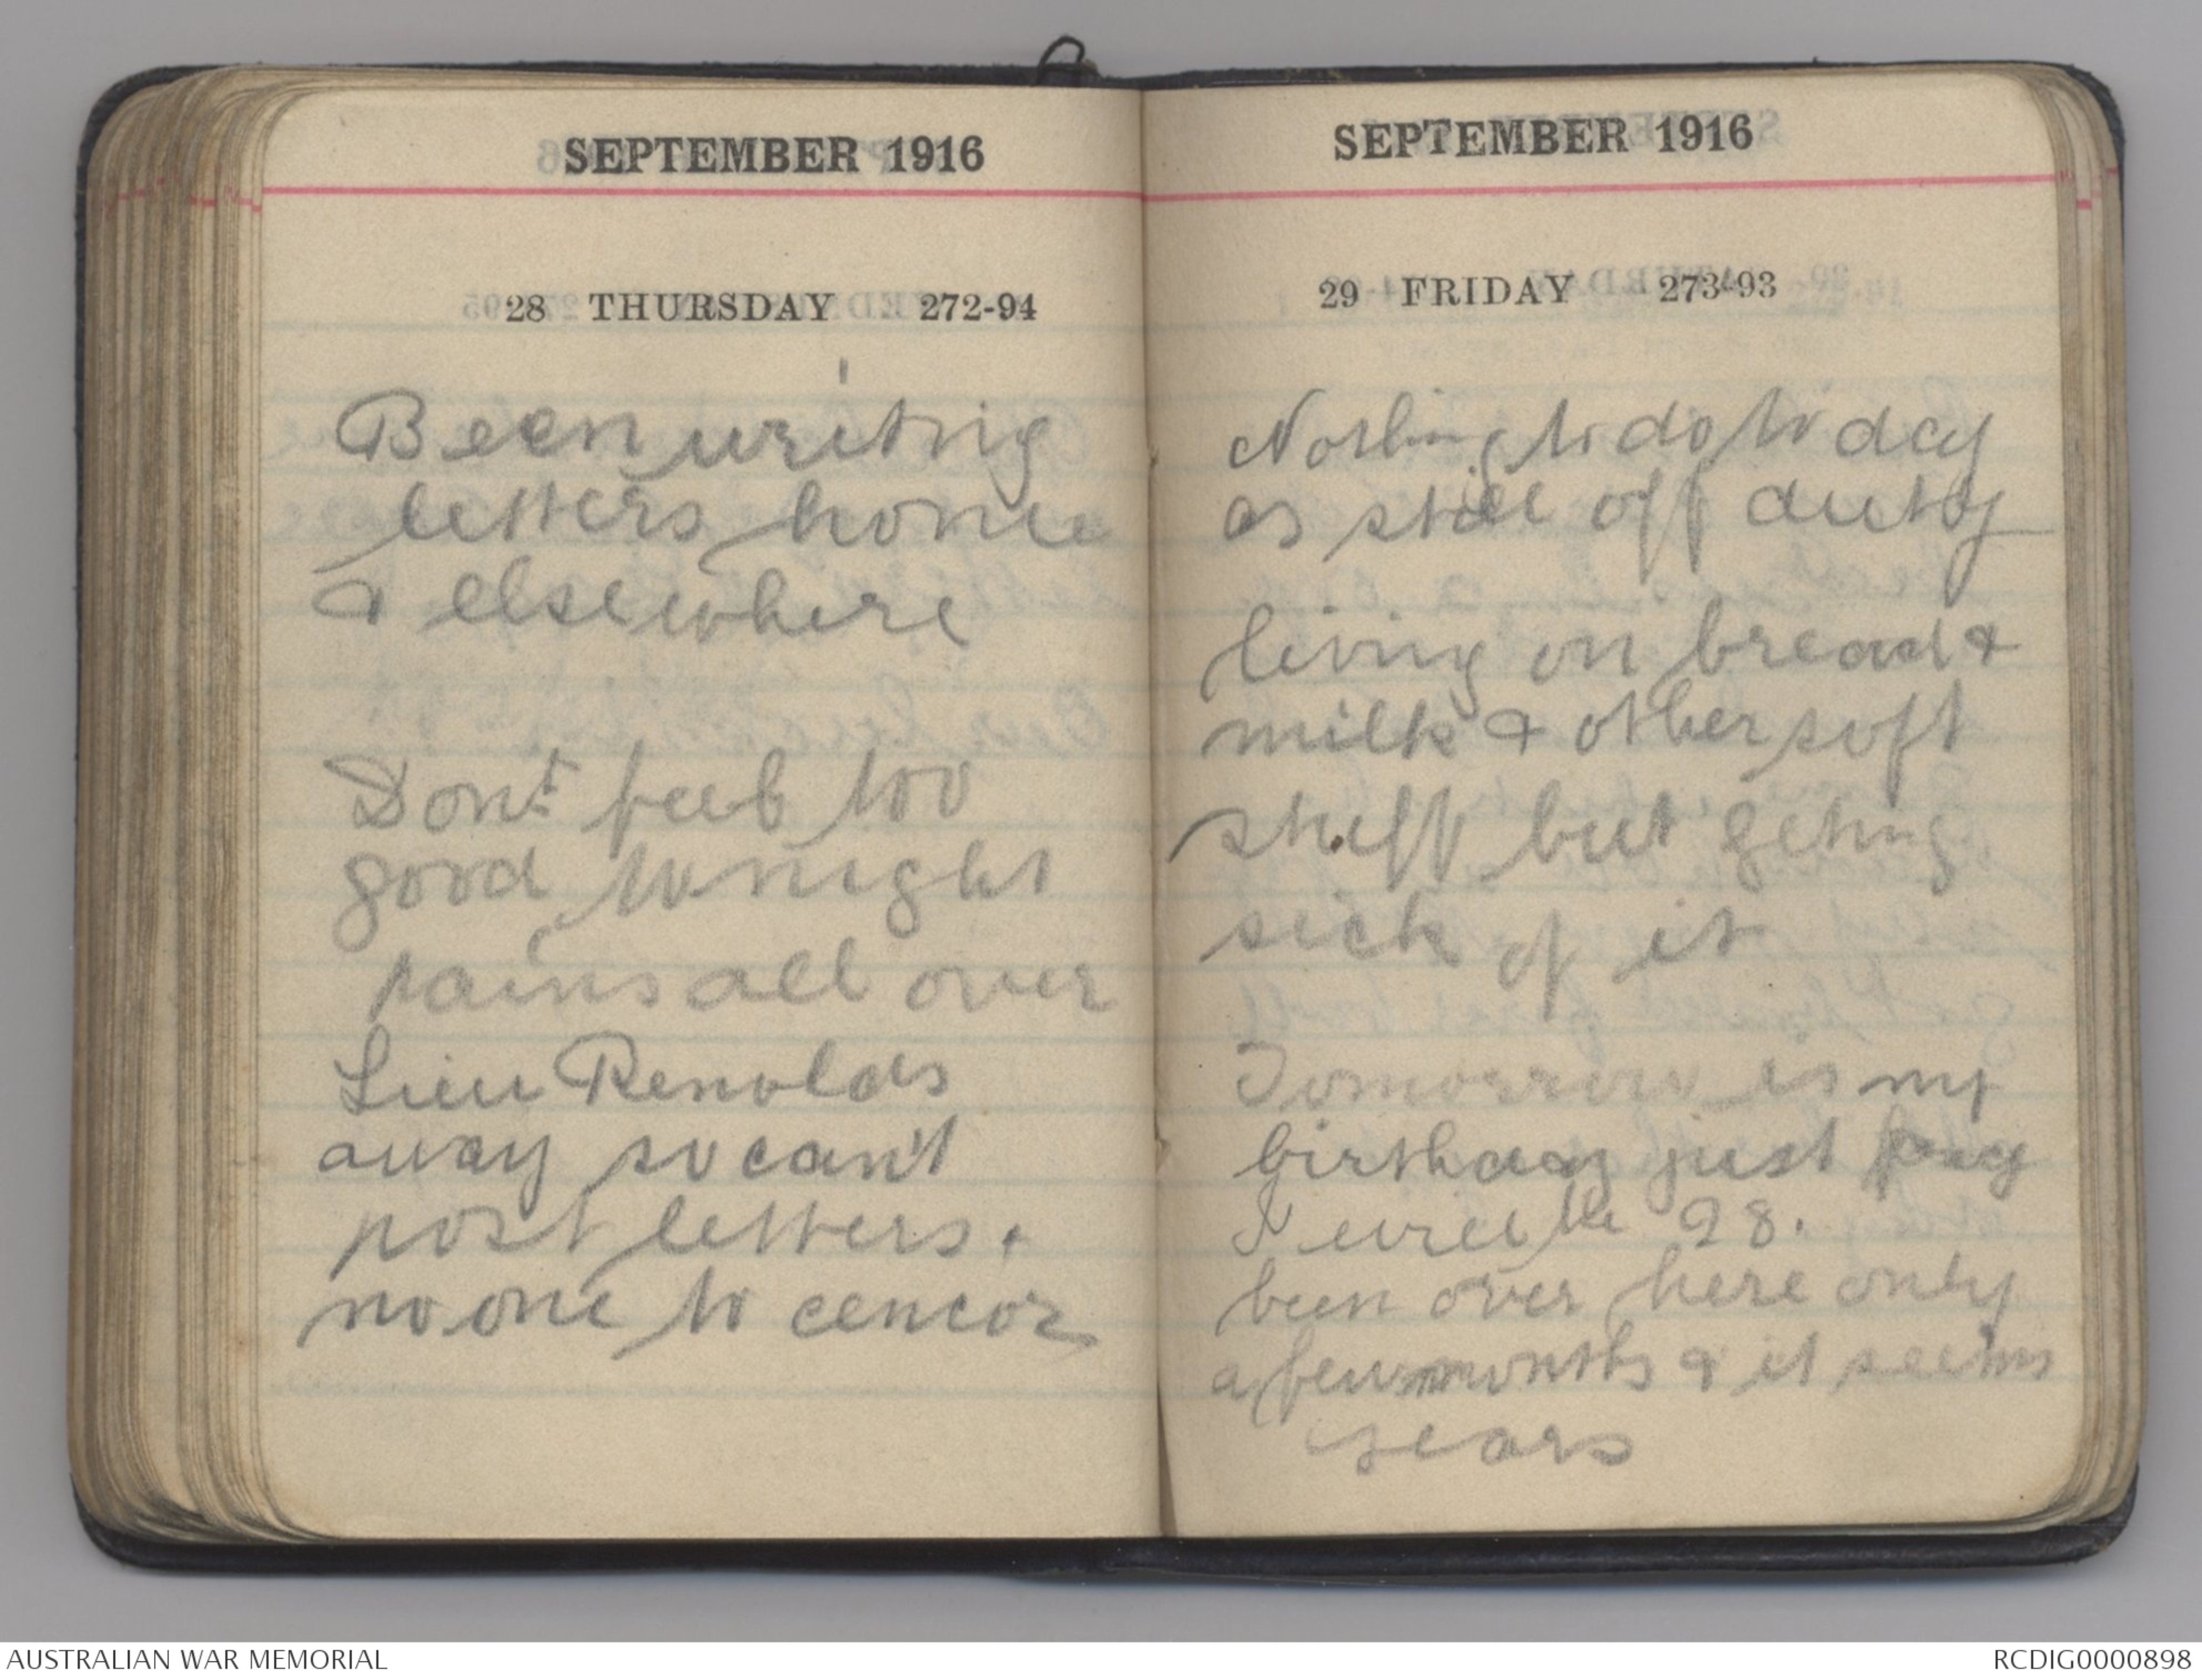 SEPTEMBER 1916
28 THURSDAY 272-94
Been writing
letters home
& elsewhere
Don't feel too
good tonight
pains all over
Lieu Renolds
away so can't
post letters &
no one to cencor
SEPTEMBER 1916
29 FRIDAY 273-93
Nothing to do to day
as still off duty
living on bread &
milk & other soft
stuff but geting
sick of it
Tomorrow is my
birthday just
I will be 28.
been over here only
a few months & it seems
years
AUSTRALIAN WAR MEMORIAL
RCDIG0000898